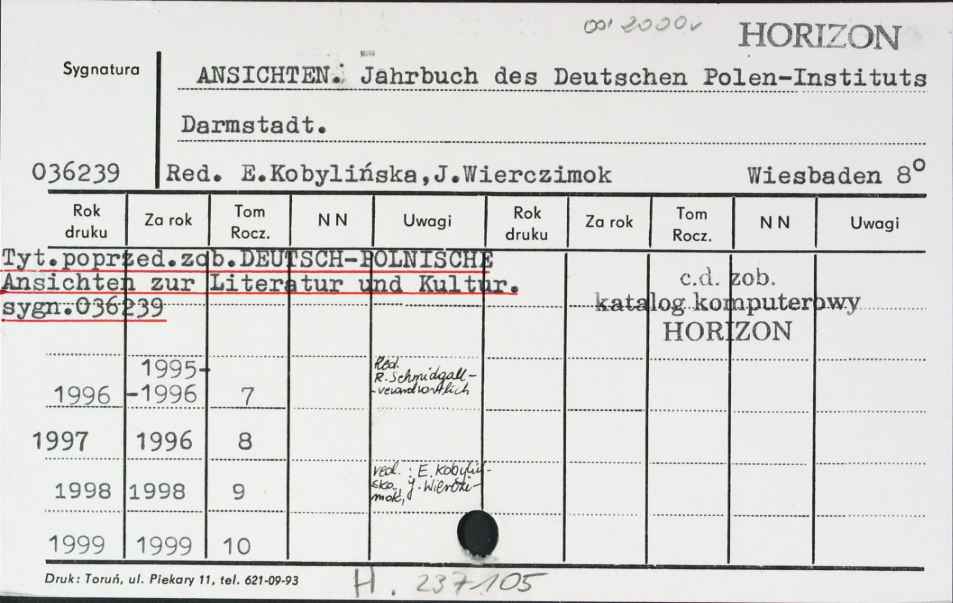 od 2000r HORIZON
Sygnatura
ANSICHTEN. Jahrbuch des Deutschen Polen-Instituts
Darmstadt.
036239 Red. E.Kobylińska,J.Wierczimok Wiesbaden 8°
Rok druku Za rok Tom Rocz. N N Uwagi Rok druku Za rok Tom Rocz. N N Uwagi
Tyt.poprzed.zob.DEUTSCH-POLNISCHE
Ansichten zur Literatur und Kultur.
sygn.036239
c.d. zob.
katalog komputerowy
HORIZON
1996 1995-
-1996 7 Red.
R.Schmidgall-
-verantwortlich
1997 1996 8
1998 1998 9 red.: E. Kobyliń-
ska, J.
1999 1999 10
Druk: Toruń, ul. Piekary 11, tel. 621-09-93
H. 237105